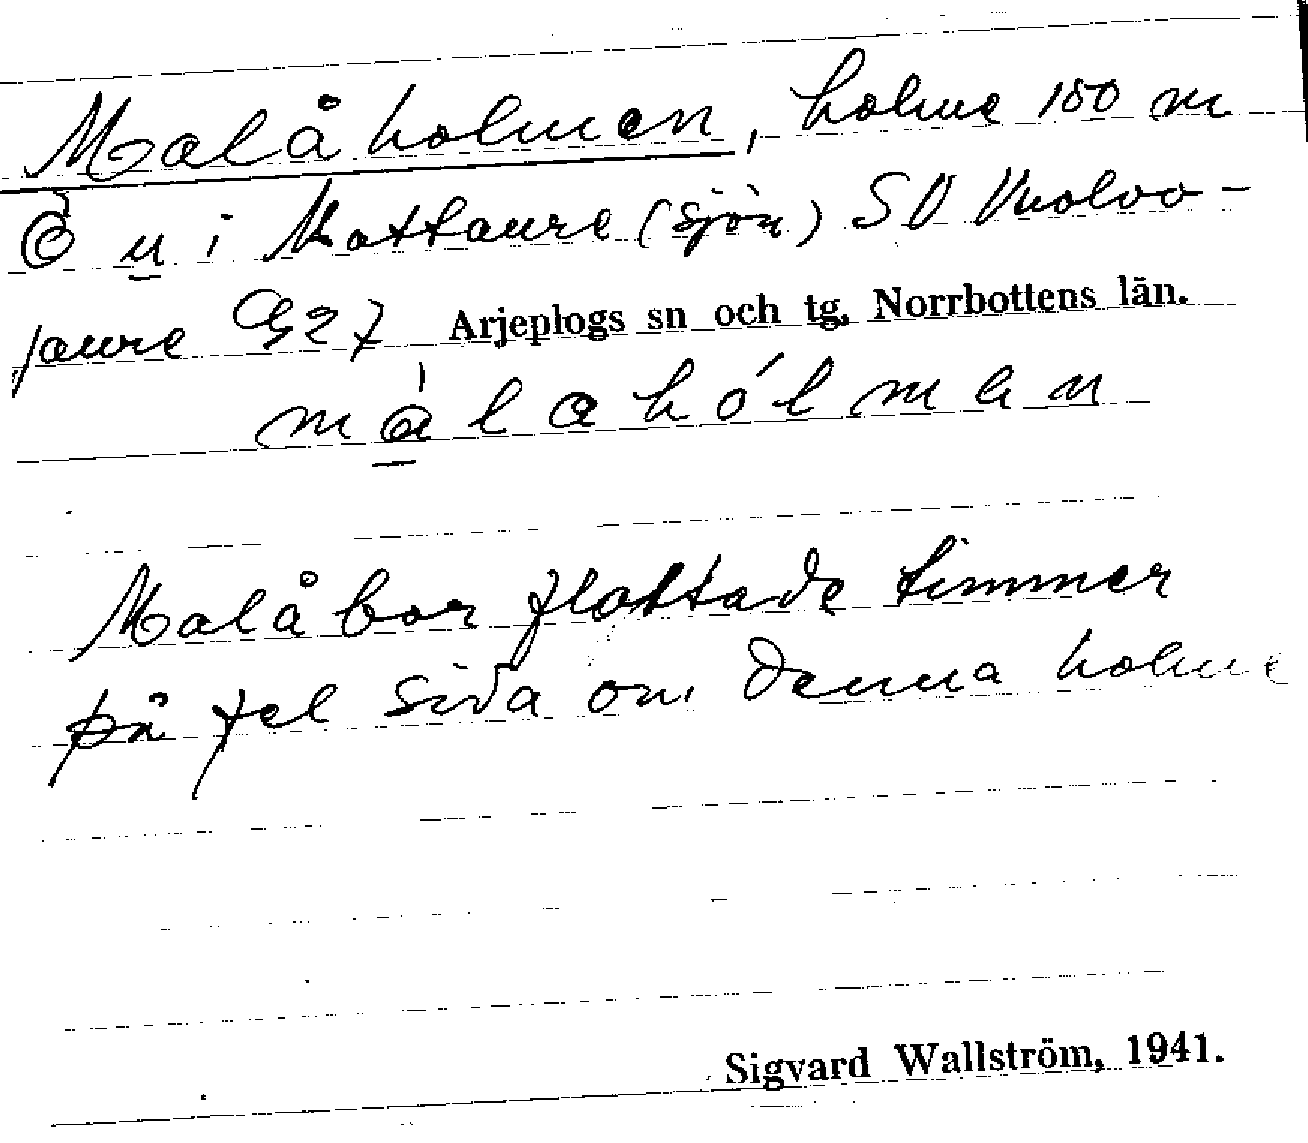 Malåholmen, holme 150 m
Ö u i Mattaure (sjön) SV Vuolvo-
jaure G27 Arjeplogs sn och tg, Norrbottens län.
málahólmen
Malåbor flottade timmer
på fel sida om denna holme
Sigvard Wallström, 1941.